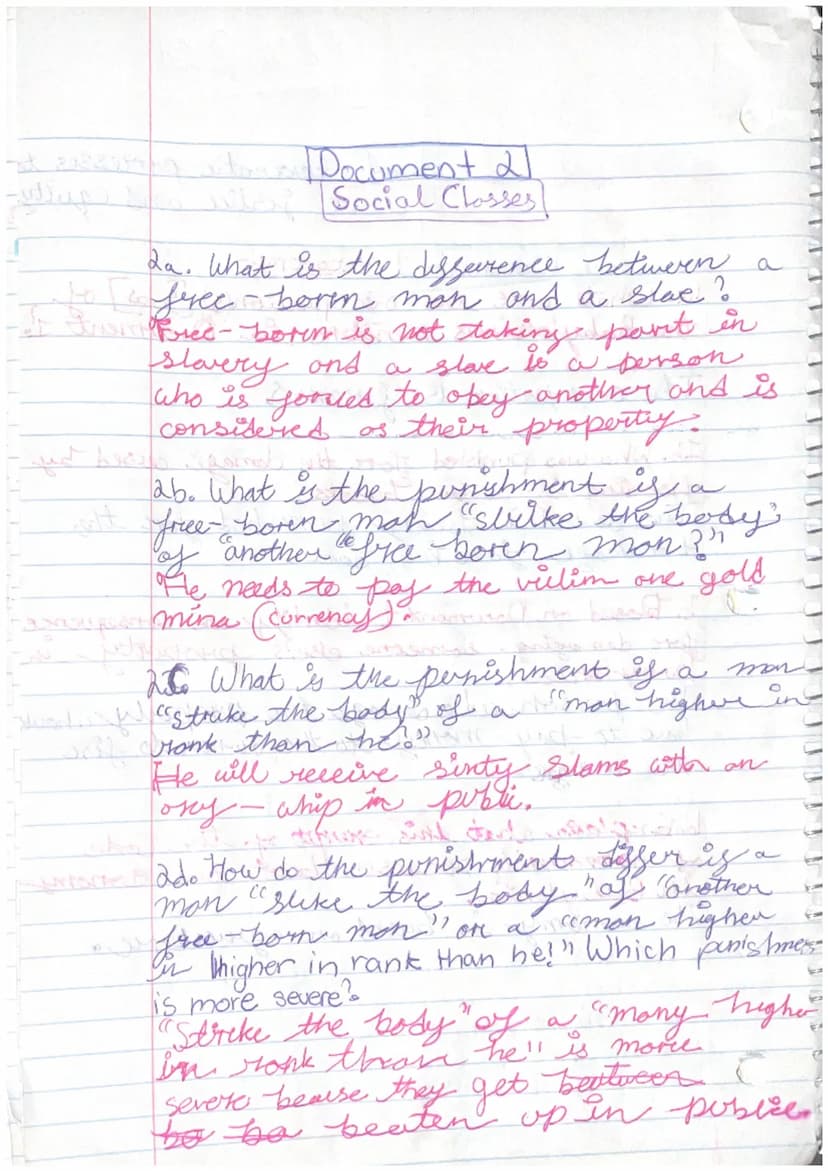 Document 2
Social Classes
2a. What is the difference between a
free-born man and a slae?
Free-born is not taking part in
slavery and a slae is a person
who is forced to obey another and is
considered as their property.
2b. What is the punishment if a
free-born man "strike the body"
of "another "free-born man?"
He needs to pay the victim one gold
mina (currency).
2c. What is the punishment if a man
"strike the body" of a "man higher in
rank than he?"
He will receive sixty slams with an
oxy-whip in public.
2d. How do the punishment differ if a
man "strike the body" of "another
free-born man" or a "man higher
in higher in rank than he!" Which punishmen
is more severe?
"Strike the body" of a "many higher
in rank than he" is more
severe beause they get between
be ba beaten up in public.